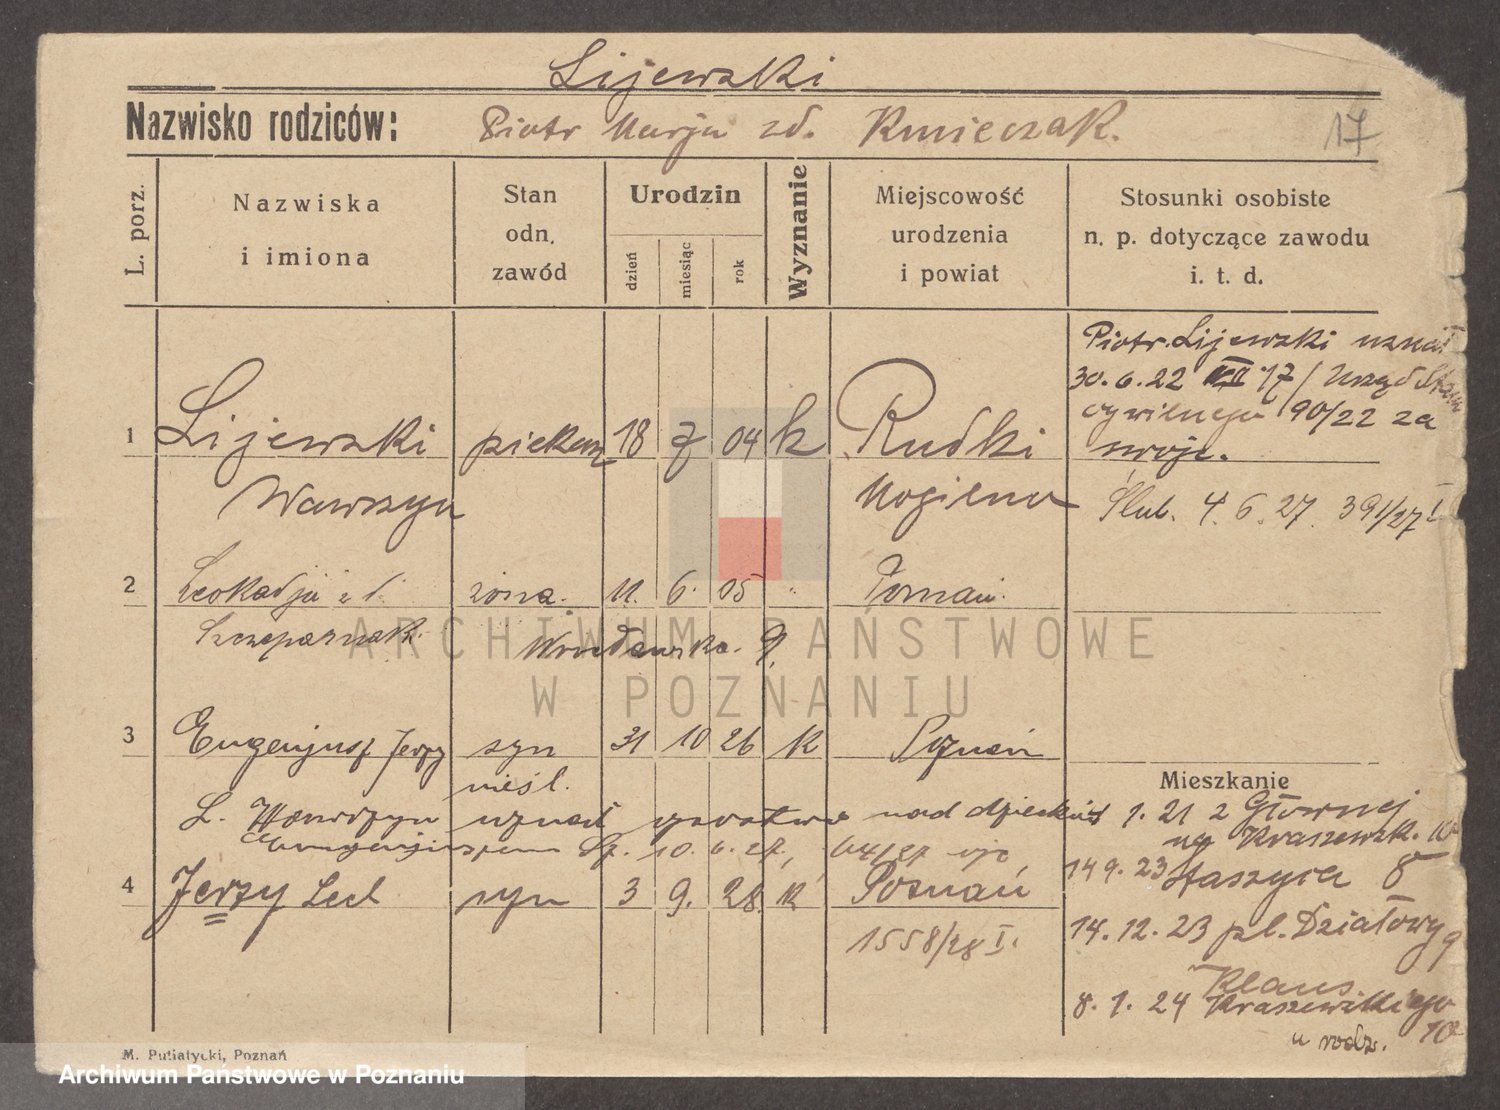 Lijewski
Nazwisko rodziców: Piotr Marja zd. Kmieczak. 17
L. porz.
Nazwiska i imiona
Stan odn. zawód
Urodzin
dzień
miesiąc
rok
Wyznanie
Miejscowość urodzenia i powiat
Stosunki osobiste n. p. dotyczące zawodu i. t. d.
Piotr Lijewski uznał
30. 6. 22 17/ Urząd Stanu
cywilnego 90/22 za
swoje.
1 Lijewski piekarz 18 7 04 k Rudki
Wawrzyn Mogilno
Ślub. 4. 6. 27. 391/27 I
2 Leokadja zd. żona. 11. 6. 05 " Poznań.
Szczepaniak Wrocławska 9.
ARCHIWUM PAŃSTWOWE
W POZNANIU
3 Eugenjusz Jerzy syn 31 10 26 k Poznań
nieśl.
Mieszkanie
L. Wawrzyn uznał ojcostwo nad dzieckiem
Eugenjuszem 10. 6. 27, 64/27
1. 21 z Głównej
na Kraszewsk. 10
14 9. 23 Staszyca 8
4 Jerzy Lech syn 3 9. 28. k Poznań
1558/28 I.
14. 12. 23 pl. Działowy 9
Klaus
8. 1. 24 Kraszewskiego 10
u rodz.
M. Putiatycki, Poznań
Archiwum Państwowe w Poznaniu